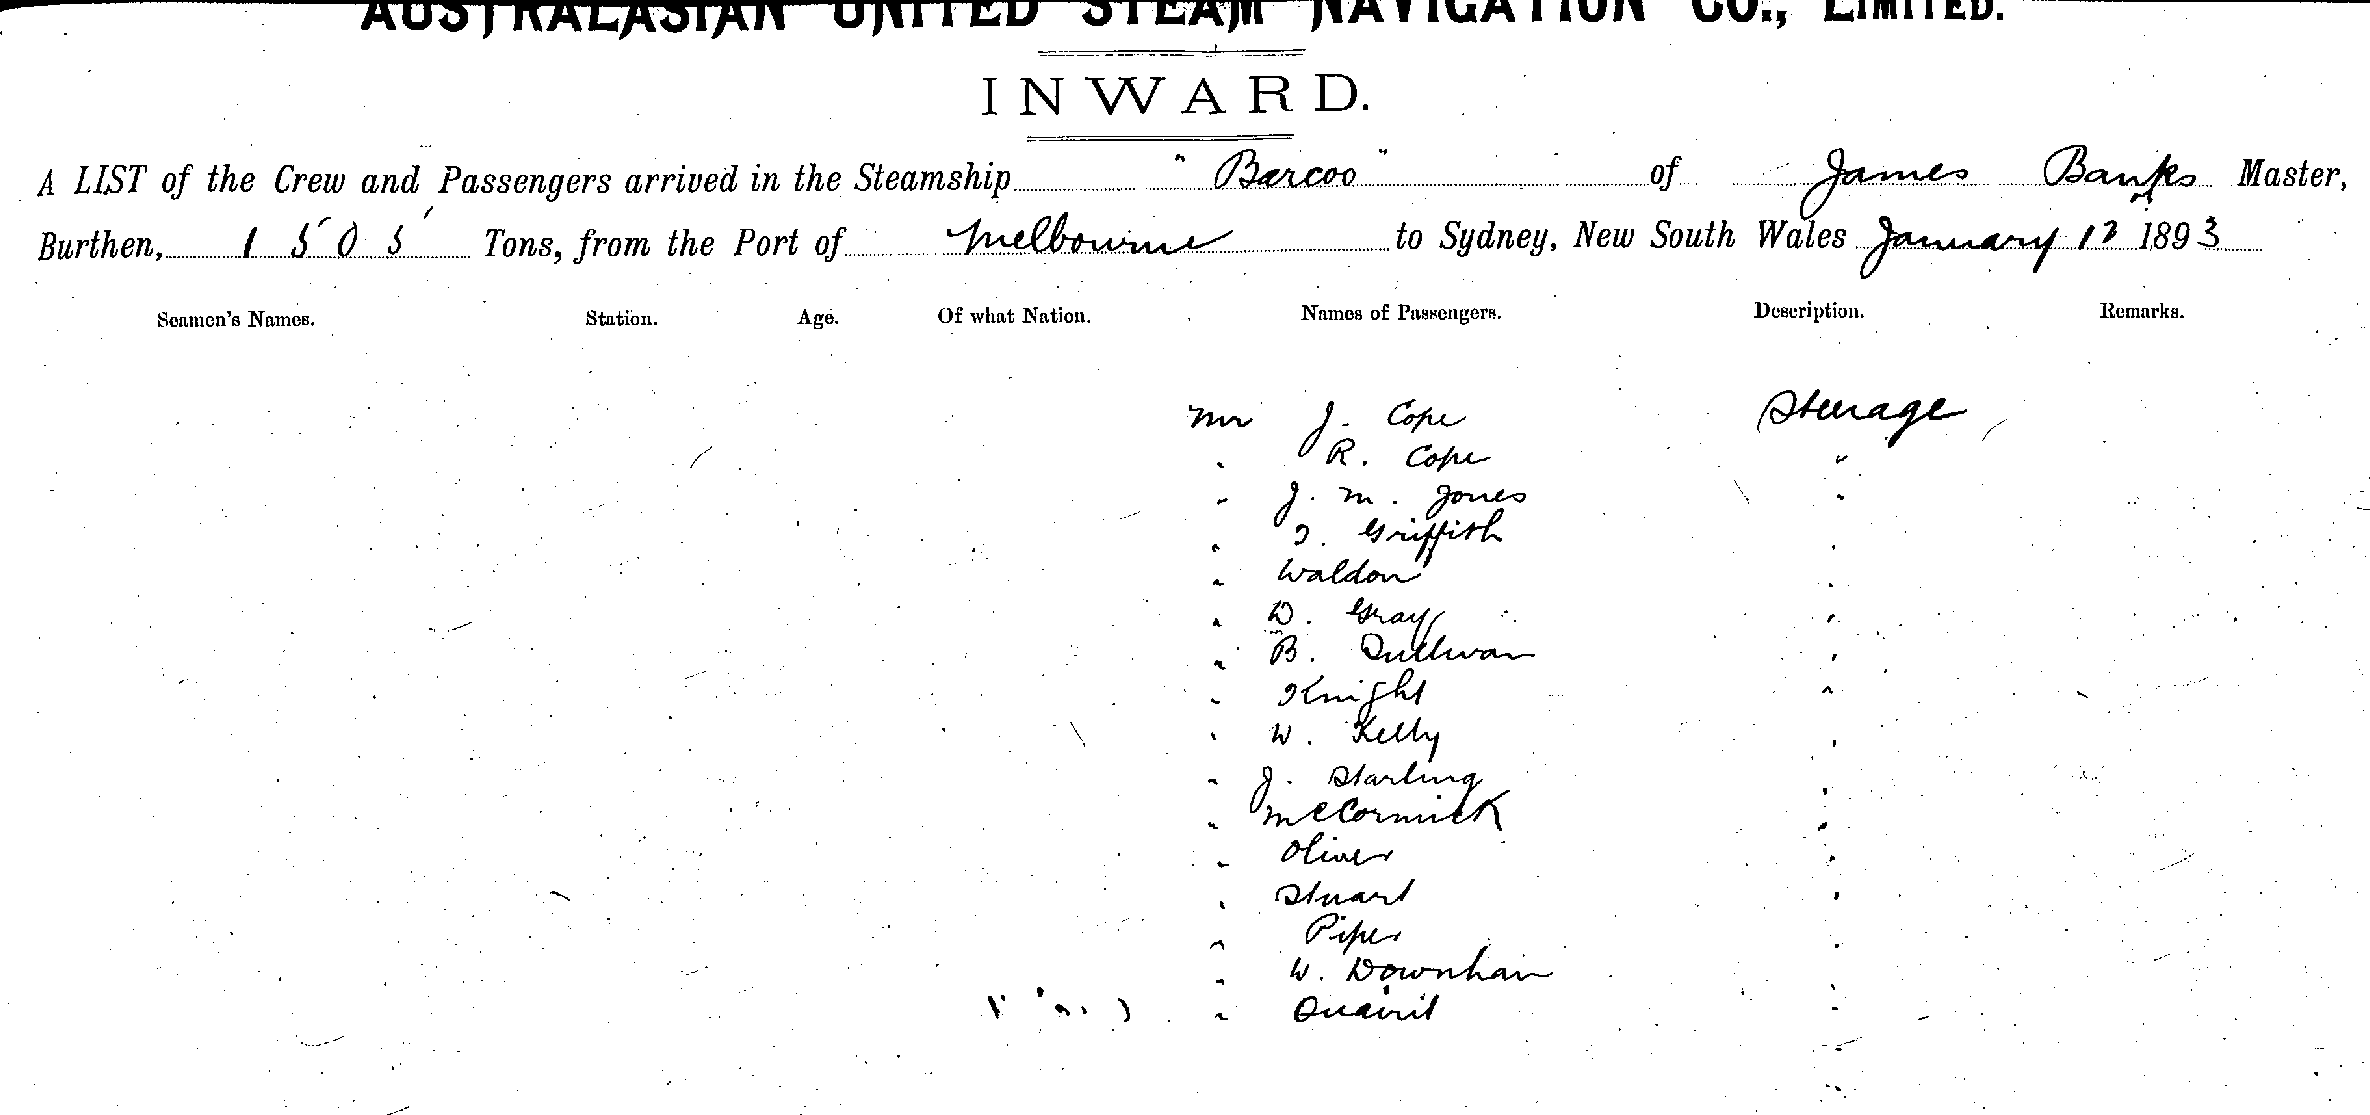 AUSTRALASIAN UNITED STEAM NAVIGATION CO., LIMITED.
INWARD.
A LIST of the Crew and Passengers arrived in the Steamship "Barcoo" of James Banks Master,
Burthen, 1505 Tons, from the Port of Melbourne to Sydney, New South Wales January 12 1893
Seamen's Names. Station. Age. Of what Nation. Names of Passengers. Description. Remarks.
Mr J. Cope Steerage
" R. Cope "
" J. M. Jones "
" T. Griffith "
" Waldon "
" D. Gray "
" B. Sullivan "
" Knight "
" W. Kelly "
" J. Starling "
" McCormick "
" Oliver "
" Stuart "
" Piper "
" W. Downham "
" "